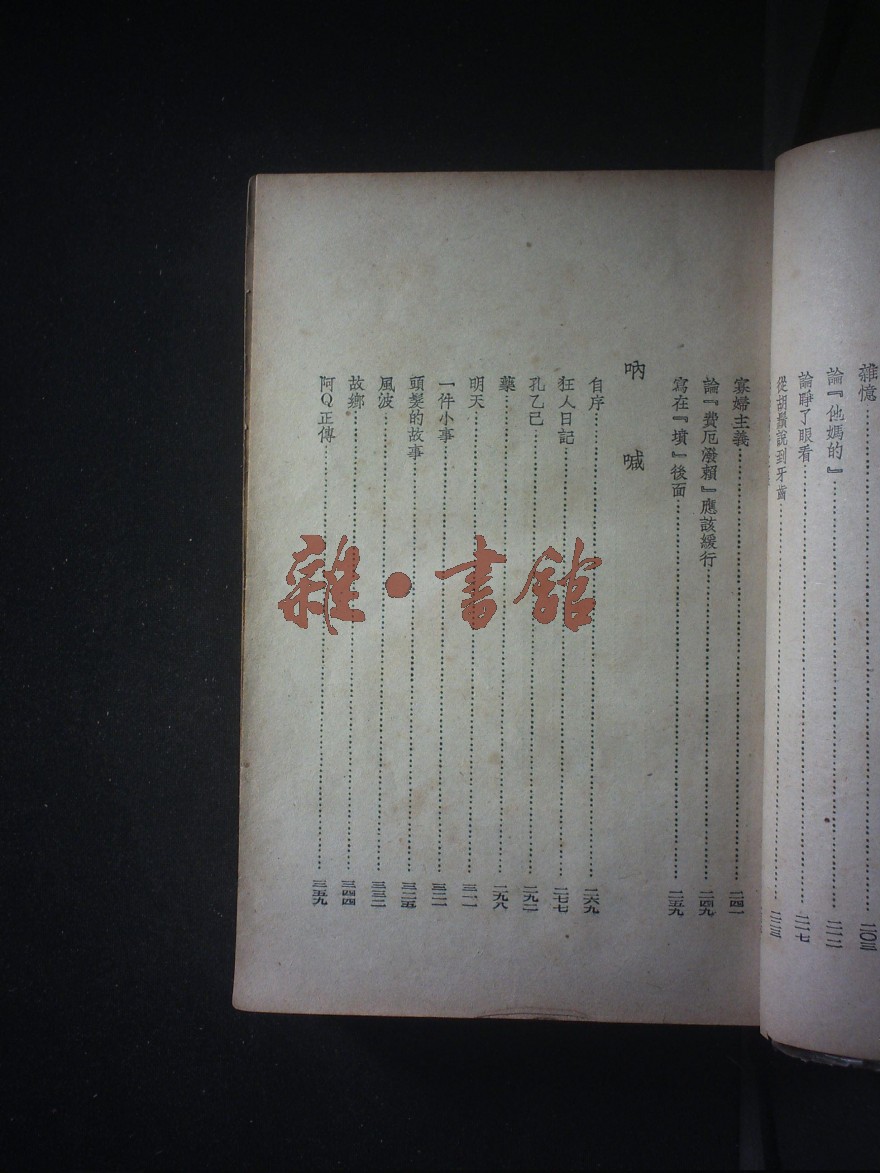 雜憶……二〇三
論『他媽的』……二一二
論睜了眼看……二一七
從胡鬚說到牙齒……二二三
寡婦主義……二四一
論『費厄潑賴』應該緩行……二四九
寫在『墳』後面……二五九
吶喊
自序……二六九
狂人日記……二七七
孔乙己……二九二
藥……二九八
明天……三一一
一件小事……三二一
頭髮的故事……三二五
風波……三三二
故鄉……三四四
阿Q正傳……三五九
雜·書館